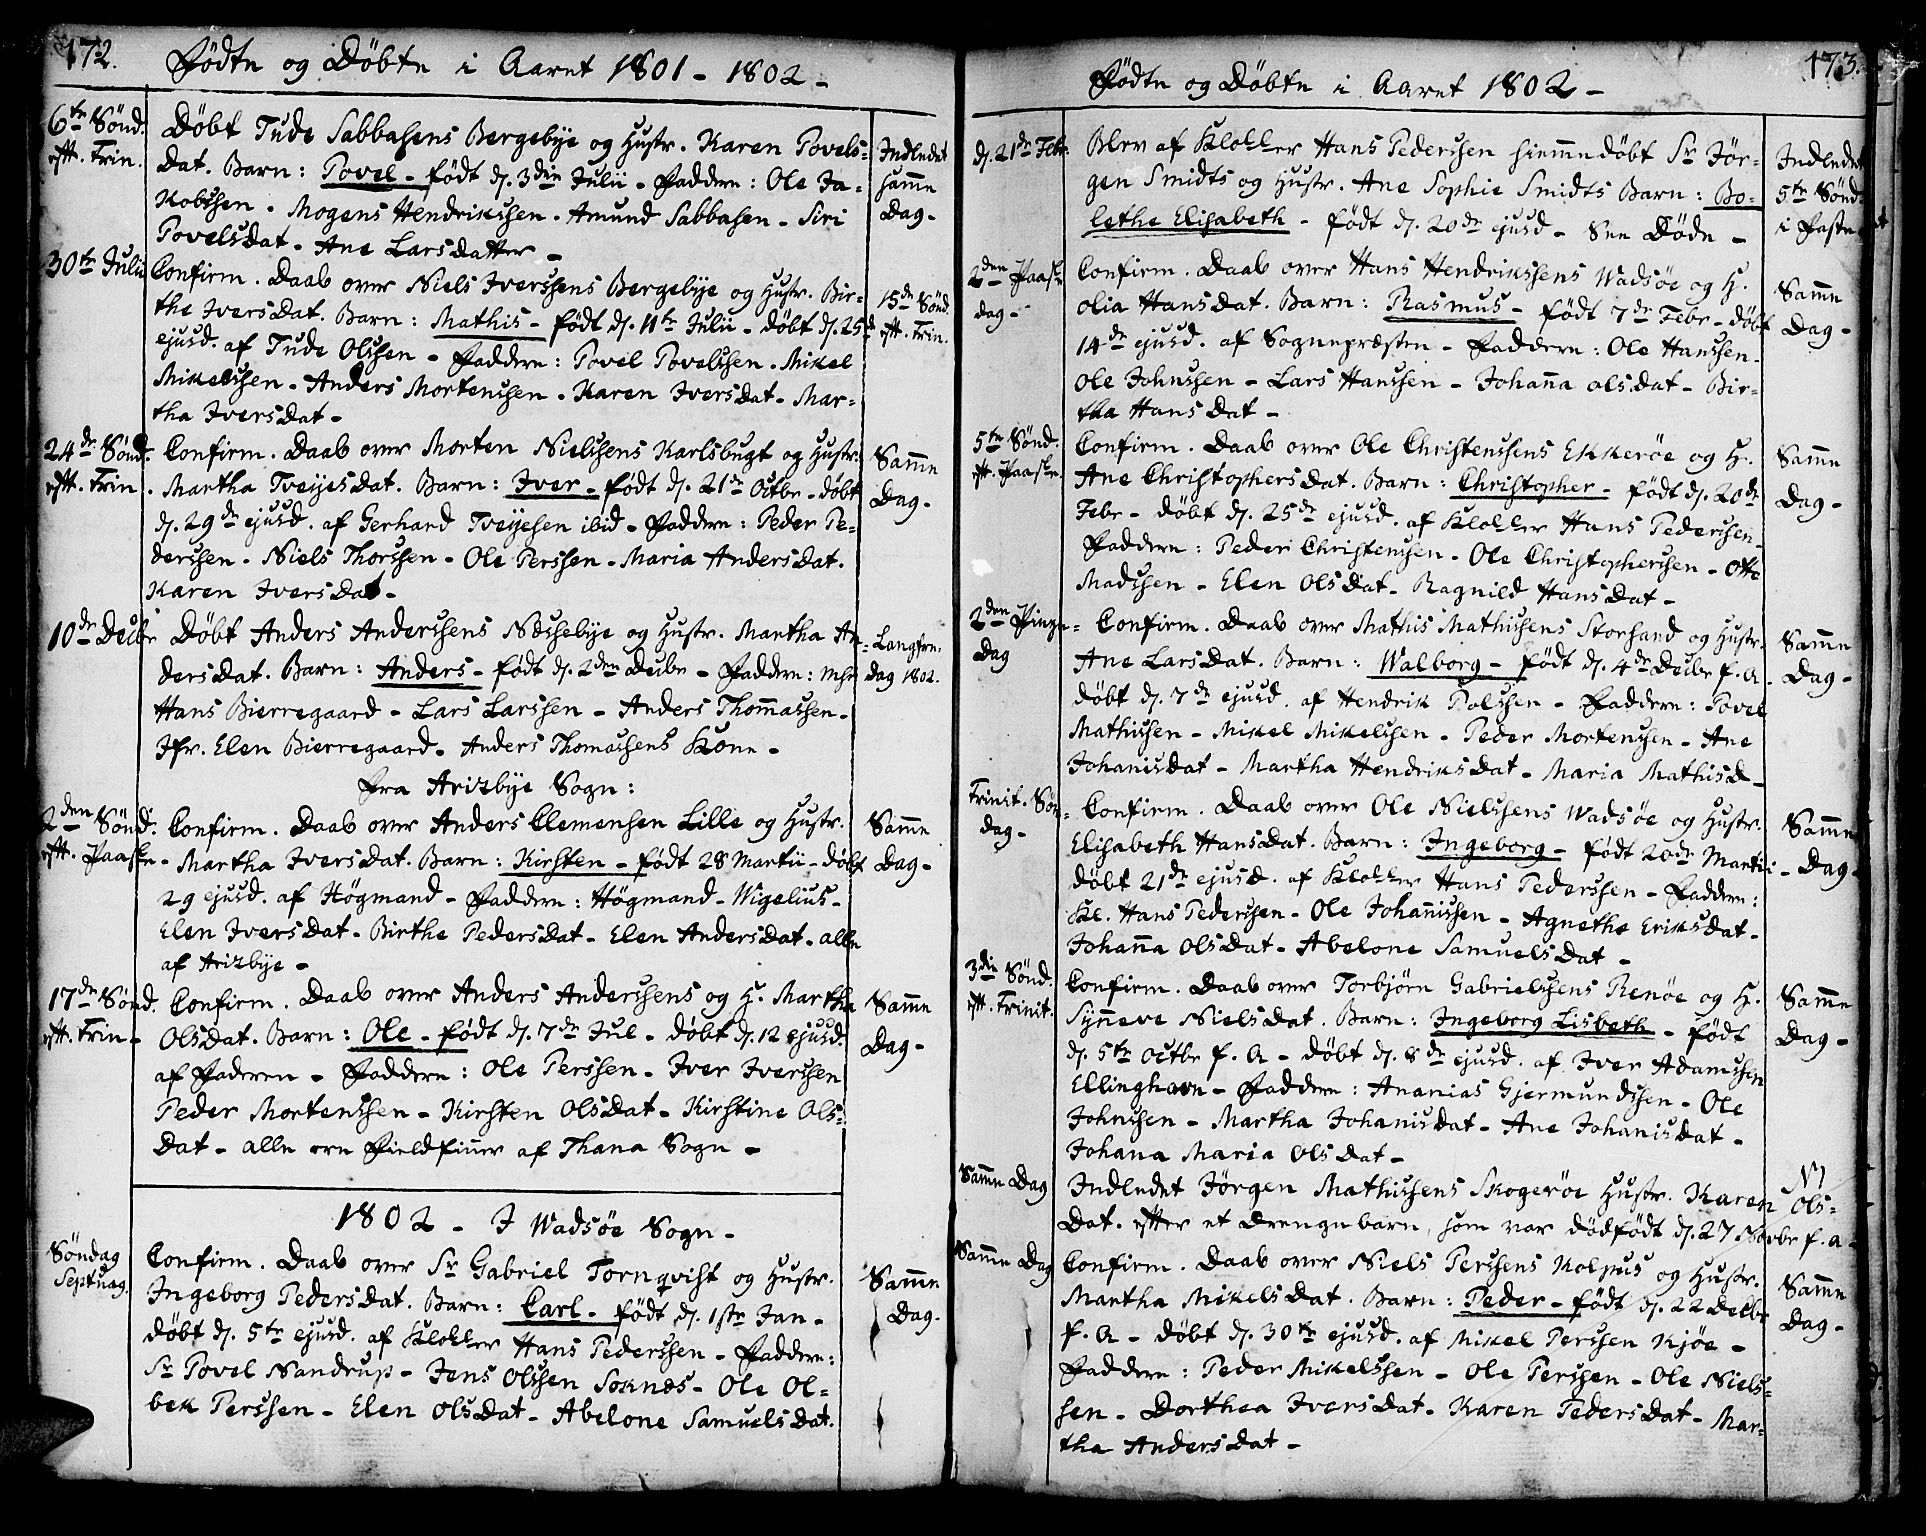 172.
Födte og Döbte i Aaret 1801 - 1802 -
6te Sönd. eft. Trin.
Döbt Tude Sabbasens Bergebÿe og Hustr. Karen Povels=
Dat. Barn: Povel - födt d. 3die Julii - Faddere: Ole Ja=
Kobssen - Mogens Hendrikssen - Amund Sabbasen - Siri
Povelsdat - Ane Larsdatter -
Indledet samme Dag -
30te Julii
Confirm. Daab over Niels Iverssens Bergebÿe og Hustr. Bir=
the Iversdat. Barn: Mathis - födt d. 11te Julii - döbt d. 25de
ejusd. af Tude Olssen - Faddere: Povel Povelssen - Mikel
Mikelssen - Anders Mortenssen - Karen Iversdat - Mar=
tha Iversdat -
15de Sönd. eft. Trin.
24de Sönd. eft. Trin.
Confirm. Daab over Morten Nielssens Karlsbugt og Hustr.
Martha Tveÿesdat. Barn: Iver - födt d. 21de Octbr - döbt
d. 29de ejusd. af Gerhard Tveÿesen ibid - Faddere: Peder Pe=
derssen - Niels Thorssen - Ole Perssen - Maria Andersdat.
Karen Iversdat -
Samme Dag -
10de Decbr
Döbt Anders Anderssens Næssebÿe og Hustr. Martha An=
dersdat. Barn: Anders - födt d. 2den Decbr - Faddere: Mhr
Hans Bierregaard - Lars Larssen - Anders Thomassen -
Jfr. Elen Bierregaard - Anders Thomassens Kone -
Langfre. dag 1802.
Fra Arizbÿe Sogn:
2den Sönd. eft. Paaske -
Confirm. Daab over Anders Clemensen Lille og Hustr.
Martha Iversdat. Barn: Kirsten - födt 28 Martii - döbt
29 ejusd. af Högmand - Faddere: Högmand - Wigelius -
Elen Iversdat - Birthe Pedersdat - Elen Andersdat - alle
af Arizbÿe -
Samme Dag -
17de Sönd. eft. Trin -
Confirm. Daab over Anders Anderssens og H. Martha
Olsdat. Barn: Ole - födt d. 7de Jul - döbt d. 12 ejusd.
af Faderen - Faddere: Ole Perssen - Iver Iverssen
Peder Mortenssen - Kirsten Olsdat - Kirstine Ols=
Dat - alle ere Fieldfinner af Thana Sogn -
Samme Dag -
1802 - I Wadsöe Sogn -
Söndag Septuag.
Confirm. Daab over Sr Gabriel Tornqvist og Hustr.
Ingeborg Pedersdat. Barn: Carl - födt d. 1ste Jan -
döbt d. 5te ejusd. af Klokker Hans Pederssen - Faddere:
Sr Povel Nandrup - Jens Olssen Soknes - Ole Ol=
bek Perssen - Elen Olsdat - Abelone Samuelsdat.
Samme Dag -
173.
Födte og Döbte i Aaret 1802 -
d. 21de Febr.
Blev af Klokker Hans Pederssen hiemmedöbt Sr Jör=
gen Smidts og Hustr. Ane Sophie Smidts Barn: Bo=
lethe Elisabeth - födt d. 20de ejusd - See Döde -
Indledet 5te Sönd. i Faste
2den Paaske dag -
Confirm. Daab over Hans Hendrikssens Wadsöe og H.
Olia Hansdat. Barn: Rasmus - födt 7de Febr - döbt
14de ejusd. af Sognepræsten - Faddere: Ole Hanssen -
Ole Johnssen - Lars Hanssen - Johanna Olsdat - Bir=
tha Hansdat -
Samme Dag -
5te Sönd. eft. Paaske
Confirm. Daab over Ole Christenssens Ekkeröe og H.
Ane Christophersdat. Barn: Christopher - födt d. 20de
Febr - döbt d. 25de ejusd. af Klokker Hans Pederssen -
Faddere: Peder Christenssen - Ole Christopherssen - Otte
Madssen - Elen Olsdat - Ragnild Hansdat -
Samme Dag -
2den Pinze= Dag
Confirm. Daab over Mathis Mathissens Storsand og Hustr.
Ane Larsdat. Barn: Walborg - födt d. 4de Decbr f. A.
döbt d. 7de ejusd. af Hendrik Polssen - Faddere: Povel
Mathissen - Mikel Mikelssen - Peder Mortenssen - Ane
Johanisdat - Martha Hendriksdat - Maria Mathisd -
Samme Dag -
Trinit. Sön= dag -
Confirm. Daab over Ole Nielssens Wadsöe og Hustr.
Elisabeth Hansdat. Barn: Ingeborg - födt 20de Martii -
döbt 21de ejusd. af Klokker Hans Pederssen - Faddere:
Kl. Hans Pederssen - Ole Johanissen - Agnethe Eriksdat -
Johanna Olsdat - Abelone Samuelsdat -
Samme Dag -
3die Sönd. eft. Trinit.
Confirm. Daab over Torbjörn Gabrielssens Renöe og H.
Synneve Nielsdat. Barn: Ingeborg Lisbeth - födt
d. 5te Octbr f. A - döbt d. 8de ejusd. af Iver Adamssen
Ellinghavn - Faddere: Ananias Gjermundssen - Ole
Johnssen - Martha Johanisdat - Ane Johanisdat -
Johana Maria Olsdat -
Samme Dag -
Samme Dag
Indledet Jörgen Mathissens Skogeröe Hustr. Karen Ols=
Dat. efter et Drengebarn, som var dödfödt d. 27 Novbr f. a -
Samme Dag
Confirm. Daab over Niels Perssens Kolpus og Hustr.
Martha Mikelsdat. Barn: Peder - födt d. 22 Decbr
f. A - döbt d. 30te ejusd. af Mikel Perssen Kjöe -
Faddere: Peder Mikelssen - Ole Perssen - Ole Niels=
sen - Dorthea Iversdat - Karen Pedersdat - Mar=
tha Andersdat -
Samme Dag -